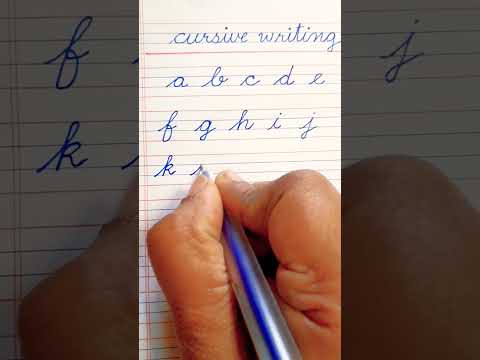 cursive writing
a b c d e
f g h i j
k